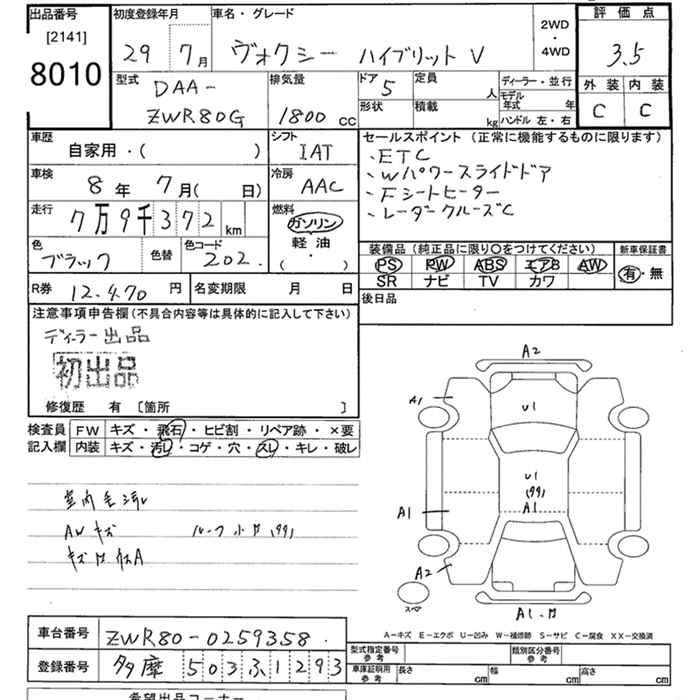 出品番号
[2141]
8010
初度登録年月
29 7月
車名・グレード
ヴォクシー ハイブリット V
2WD
・
4WD
評価点
3.5
外装 内装
C C
型式
DAA-
ZWR80G
排気量
1800 cc
ドア
5
定員
人
形状
積載
kg
ディーラー・並行
モデル
年式 年
ハンドル 左・右
車歴
自家用・( )
シフト
IAT
セールスポイント (正常に機能するものに限ります)
、ETC
、Wパワースライドドア
、Fシートヒーター
、レーダークルーズC
車検
8年 7月( 日)
冷房
AAC
走行
7万9千372km
燃料
ガソリン
軽油
( ・ )
色
ブラック
色替
色コード
202
装備品 (純正品に限り〇をつけてください)
PS PW ABS エアB AW
SR ナビ TV カワ
新車保証書
有・無
R券 12,470円
名変期限 月 日
後日品
注意事項申告欄(不具合内容等は具体的に記入して下さい)
ディーラー出品
初出品
修復歴 有 [箇所 ]
検査員
記入欄
FW キズ・飛石・ヒビ割・リペア跡・×要
内装 キズ・汚レ・コゲ・穴・スレ・キレ・破レ
AWキズ
A2
A1
U1
U1
(99)
A1
A1
A2
スペア
A1
A-キズ E-エクボ U-凹み W-補修跡 S-サビ C-腐食 XX-交換済
車台番号 ZWR80-0259358
登録番号 多摩 503ふ1293
型式指定番号
参考
類別区分番号
参考
車庫証明用
参考
長さ cm
幅 cm
高さ cm
希望出品コーナー